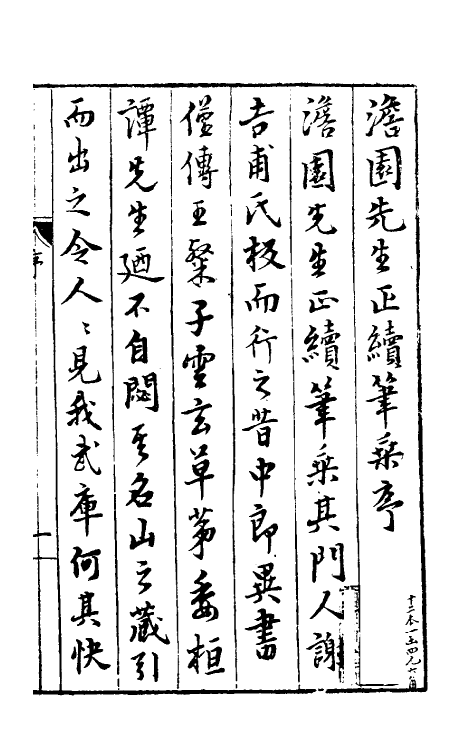 澹園先生正續筆乘序
澹園先生正續筆乘其門人謝
吉甫氏板而行之昔中郎異書
僅傳王粲子雲玄草第委桓
譚先生廼不自閟其名山之藏引
而出之令人〻見我武庫何其快
序
一